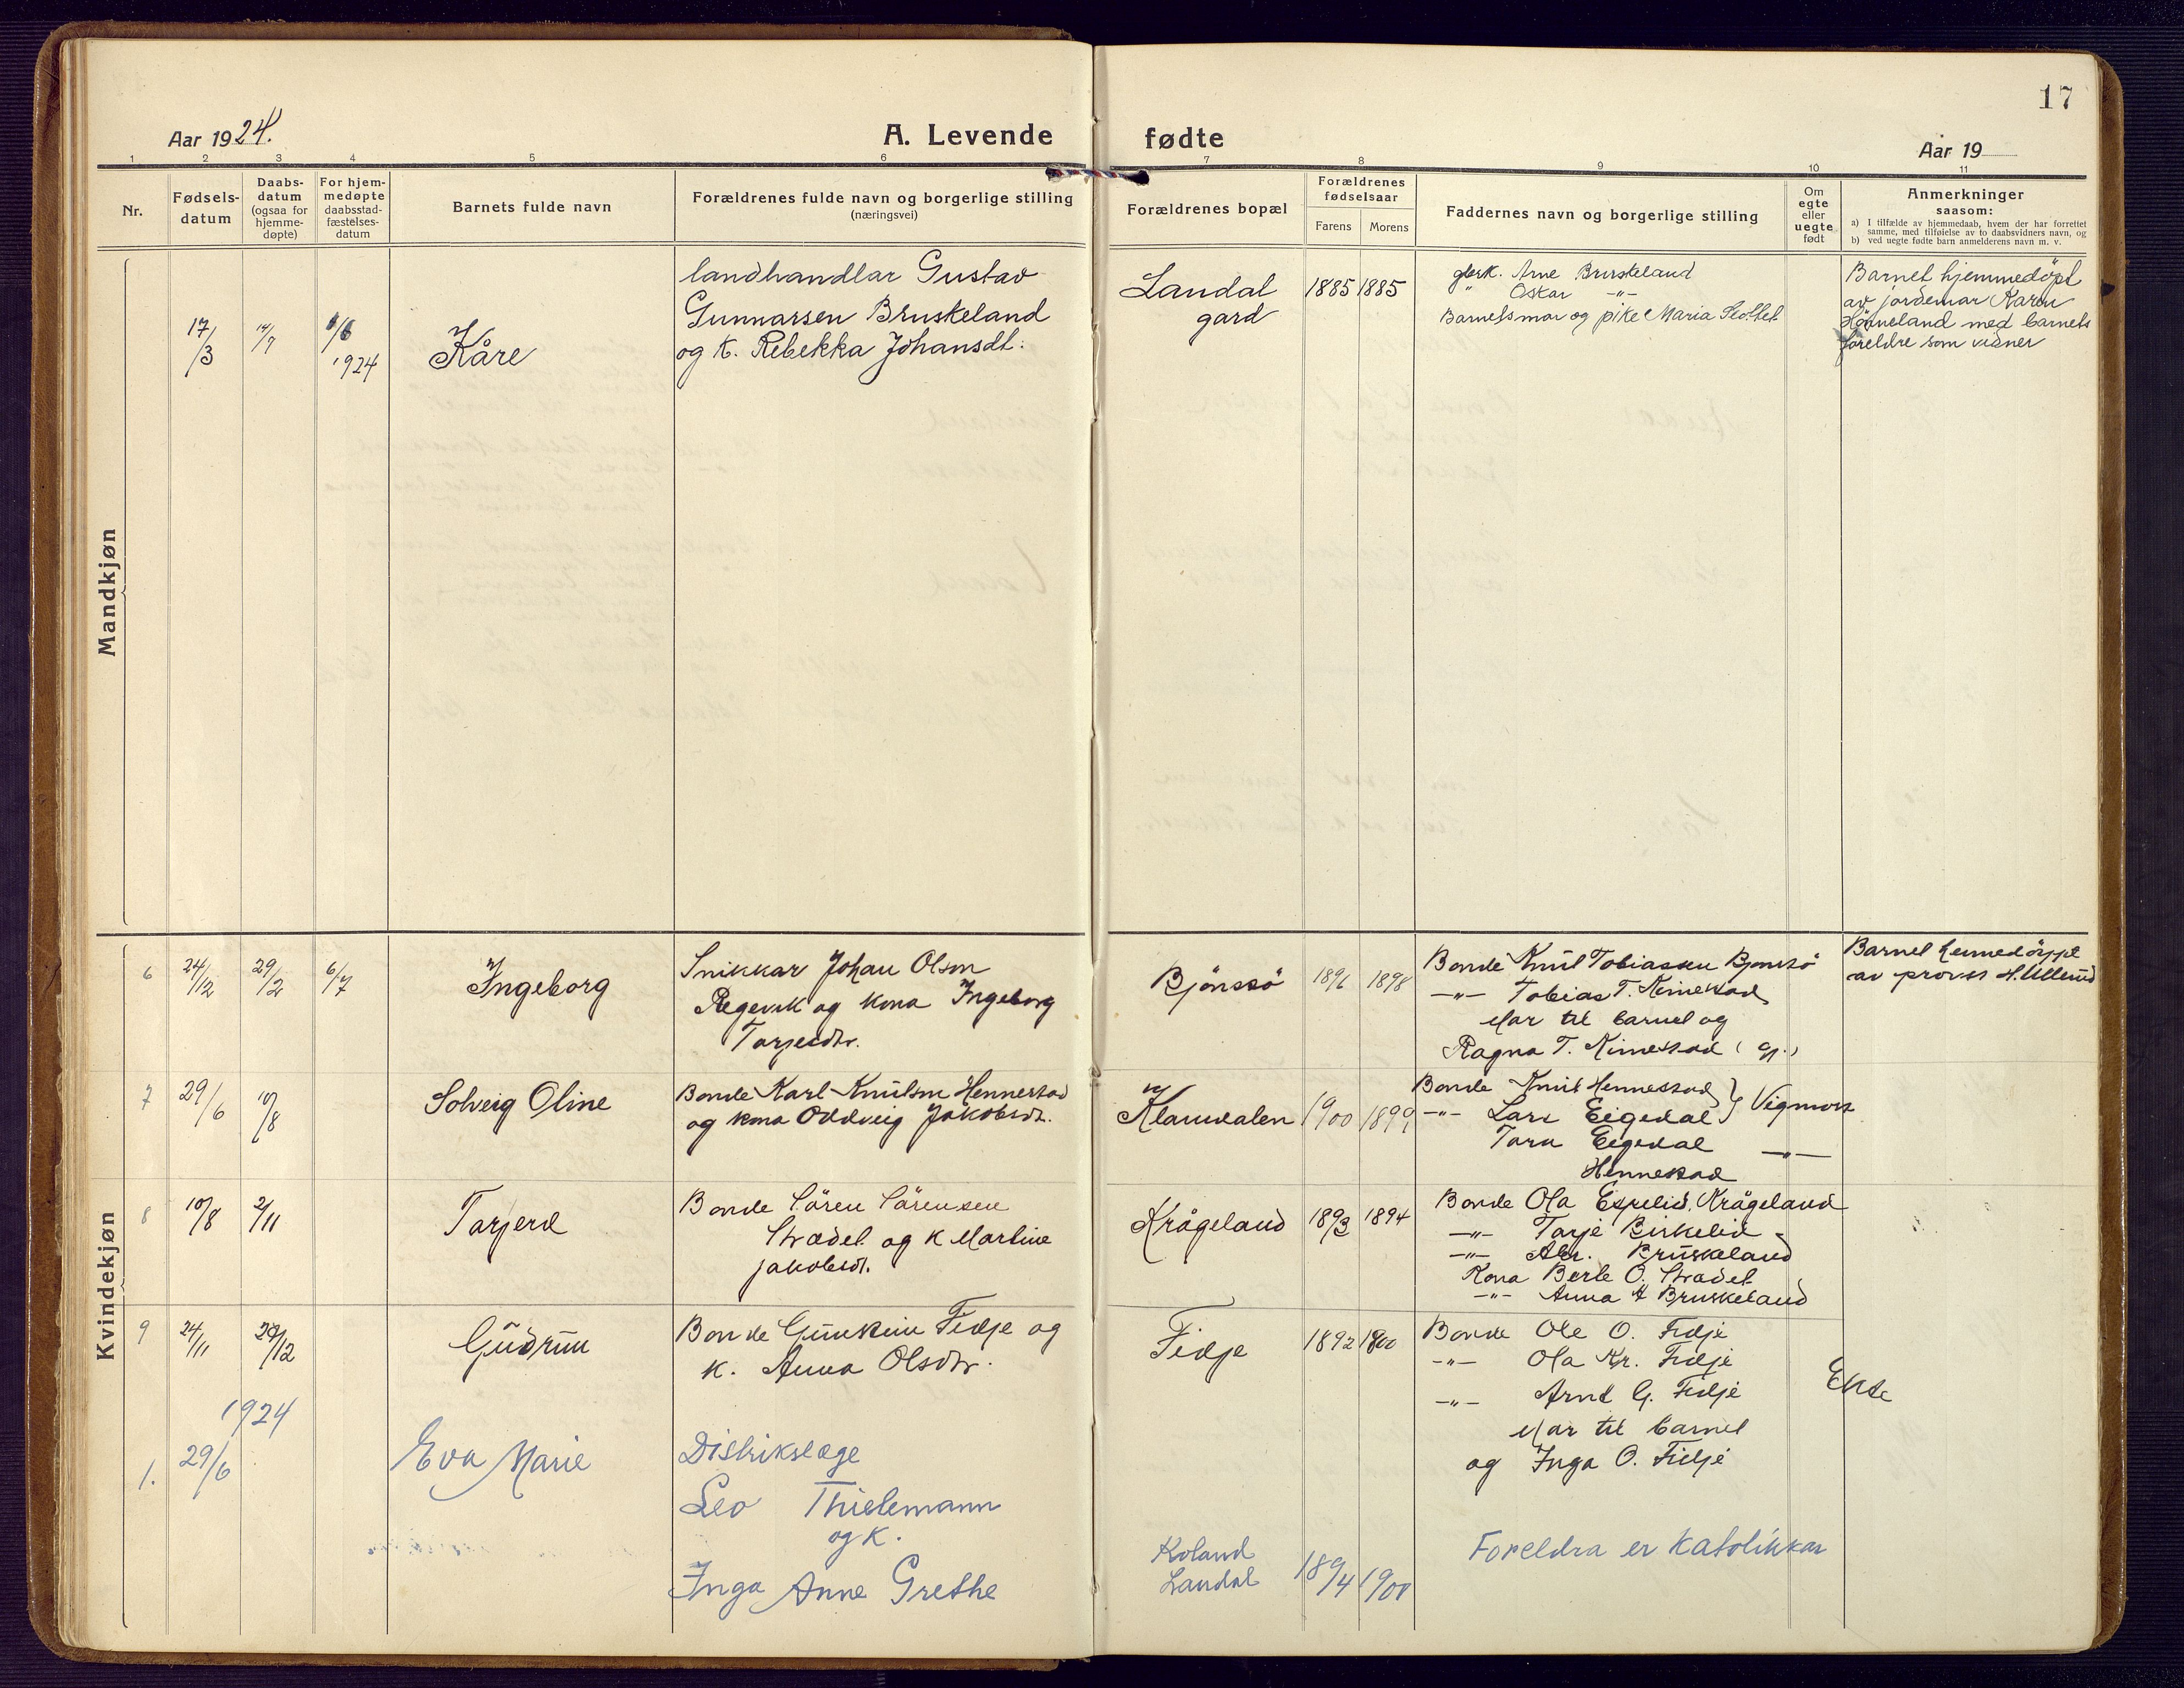 17
Aar 1924.
A. Levende fødte
Aar 19
1 2 3 4 5 6 7 8 9 10 11
Nr.
Fødsels-
datum
Daabs-
datum
(ogsaa for
hjemme-
døpte)
For hjem-
medøpte
daabsstad-
fæstelses-
datum
Barnets fulde navn
Forældrenes fulde navn og borgerlige stilling
(næringsvei)
Forældrenes bopæl
Forældrenes
fødselsaar
Farens
Morens
Faddernes navn og borgerlige stilling
Om
egte
eller
uegte
født
Anmerkninger
saasom:
a) I tilfælde av hjemmedaab, hvem der har forrettet
samme, med tilføielse av to daabsvidners navn, og
b) ved uegte fødte barn anmelderens navn m. v.
Mandkjøn
17/3
1924
Kåre
landhandlar Gustav
Gunnarsen Bruskeland
og k. Rebekka Johansdt.
Landal
gard
1885 1885
Arne Bruskeland
" Oskar -"-
Barnets mor og pike Maria Slottet
Barnet hjemmedöpt
av jordemor Karen
Hönneland med barnets
foreldre som vidner
Kvindekjøn
6 24/12 29/2 6/7
Ingeborg
Snikkar Johan Olson
Regevik og kona Ingeborg
Tarjesdtr.
Bjönssö
1896 1898
Bonde Knut Tobiassen Bjonsö
-"- Tobias T. Kimestad
Mor til barnet og
Ragna T. Kimestad (g.)
Barnet heimedöppt
av prost H. Ullerud
7 29/6 10/8
Solveig Oline
Bonde Karl Knutson Hennestad
og kona Oddveig Jakobsdt.
Klamdalen
1900 1899
Bonde Knut Hennestad
-"- Lars Eigedal } Vigmost
Tara Eigedal -"-
Hennestad
8 10/8 2/11
Tarjerd
Bonde Sören Sörensen
Strædet og k Martine
Jakobsdt.
Krågeland
1893 1894
Bonde Ola Espelid, Krågeland
-"- Tarje Birkelid -
-"- Abr. Bruskeland
Kona Berte O. Strædet
-"- Anna A Bruskeland
9 24/11 29/12
Gudrun
Bonde Gunstein Fidje og
k. Anna Olsdtr.
Fidje
1892 1900
Bonde Ole O. Fidje
-"- Ola Kr. Fidje
-"- Arnt G. Fidje
Mor til barnet
og Inga O. Fidje
Ekte
1924
1. 29/6
Eva Marie
Distrikslæge
Leo Thielemann
og k.
Inga Anne Grethe
Koland
Landal
1894 1900
Foreldra er katolikkar